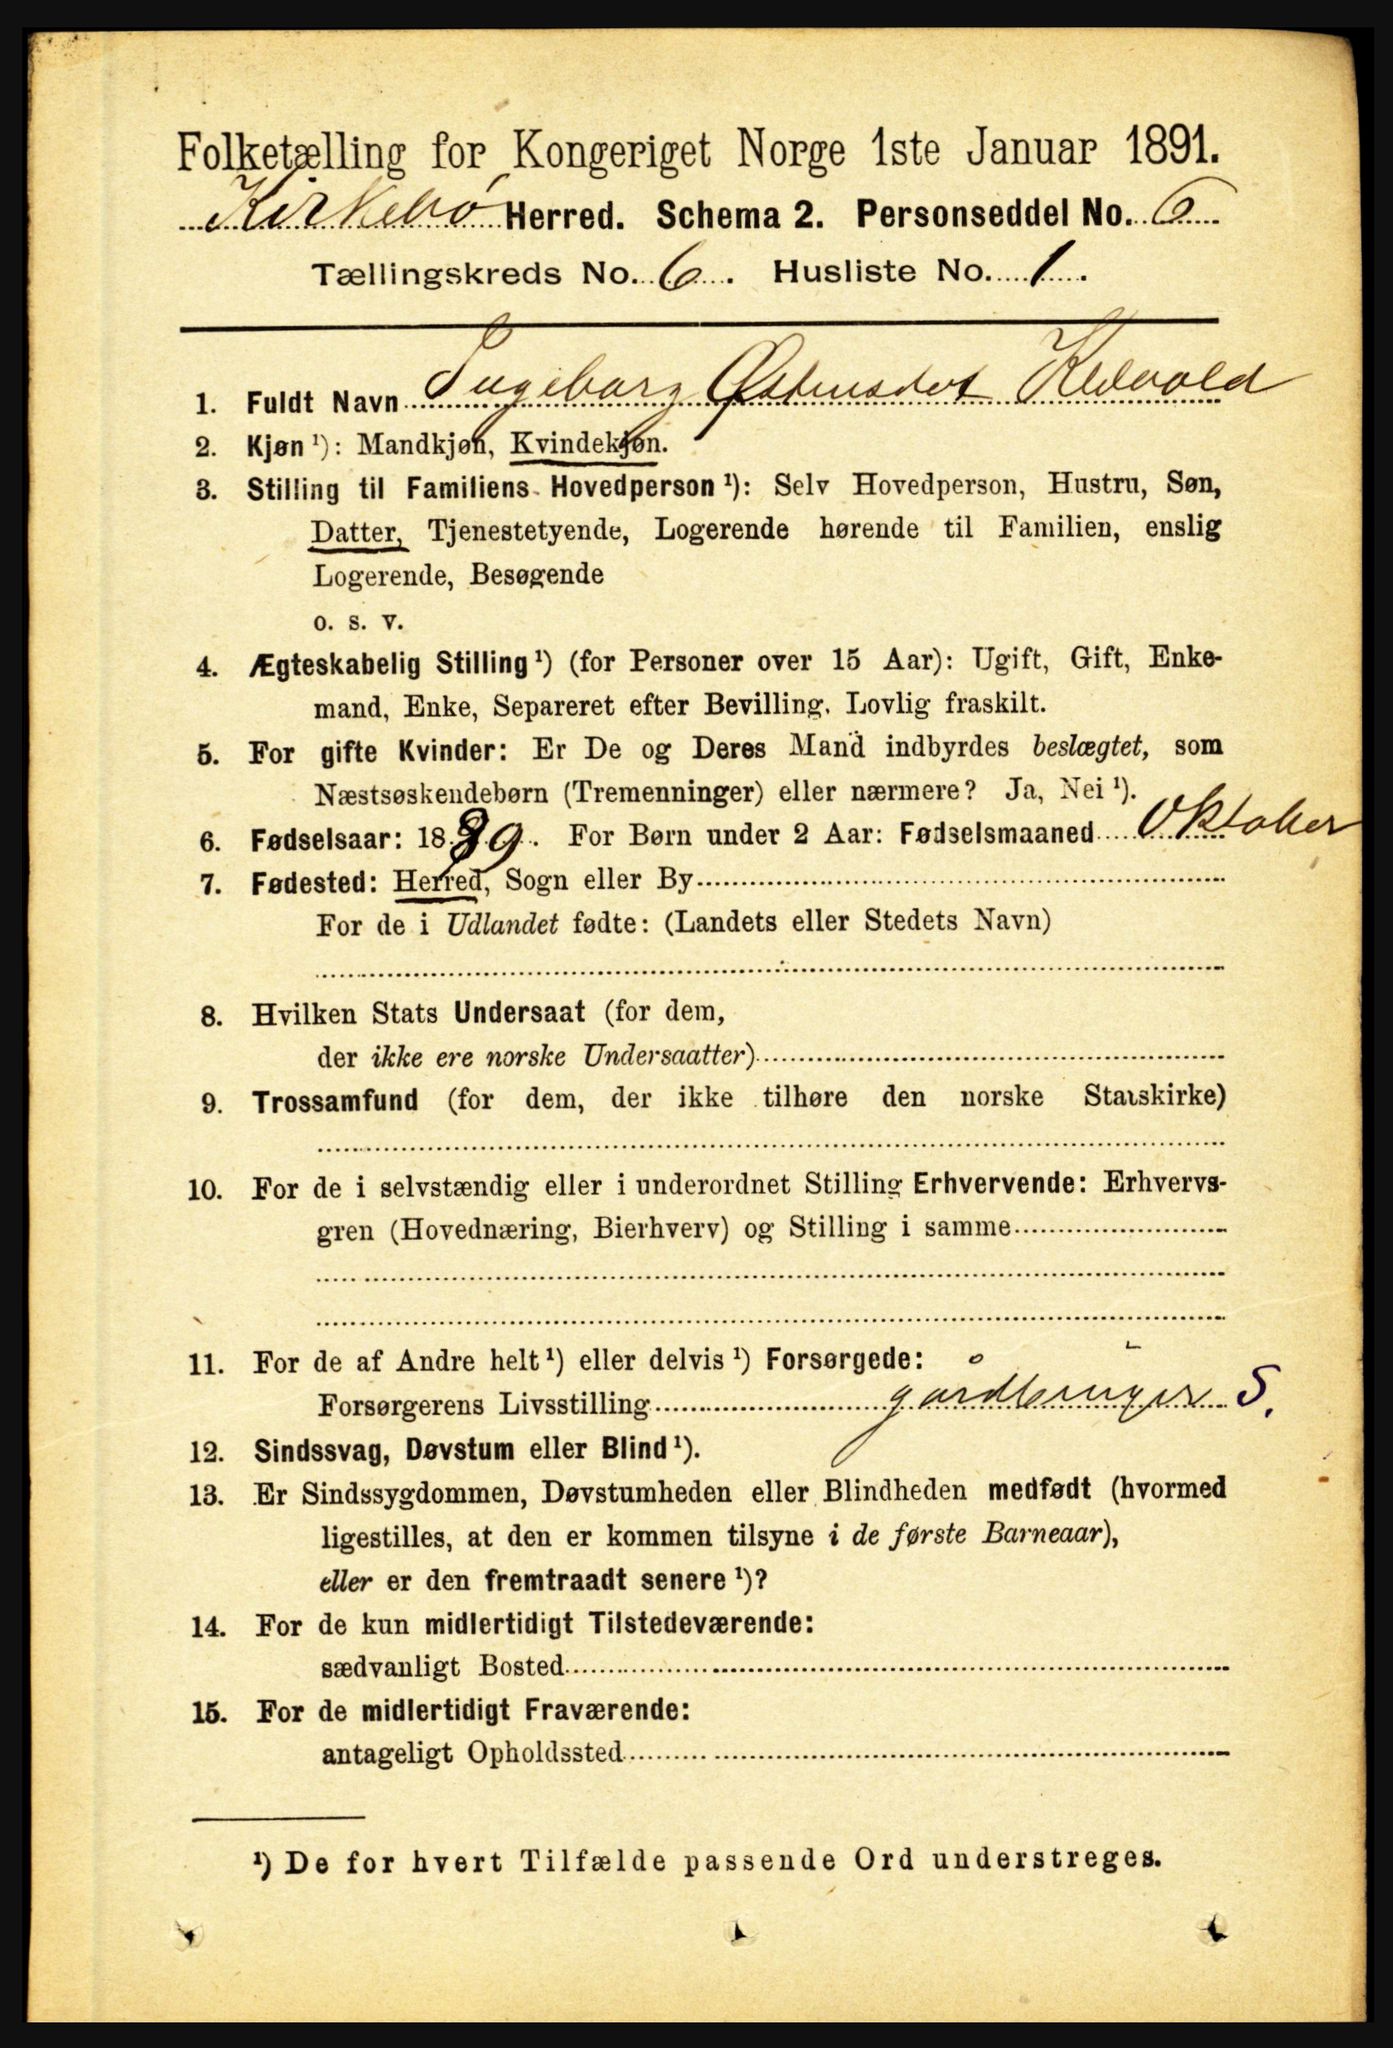 Folketælling for Kongeriget Norge 1ste Januar 1891.
Kirkebø Herred. Schema 2. Personseddel No. 6
Tællingskreds No. 6. Husliste No. 1.
1. Fuldt Navn Ingeborg Østensdot Klævold
2. Kjøn ¹): Mandkjøn, Kvindekjøn.
3. Stilling til Familiens Hovedperson ¹): Selv Hovedperson, Hustru, Søn,
Datter, Tjenestetyende, Logerende hørende til Familien, enslig
Logerende, Besøgende
o. s. v.
4. Ægteskabelig Stilling ¹) (for Personer over 15 Aar): Ugift, Gift, Enke-
mand, Enke, Separeret efter Bevilling. Lovlig fraskilt.
5. For gifte Kvinder: Er De og Deres Mand indbyrdes beslægtet, som
Næstsøskendebørn (Tremenninger) eller nærmere? Ja, Nei ¹).
6. Fødselsaar: 1889. For Børn under 2 Aar: Fødselsmaaned Oktober
7. Fødested: Herred, Sogn eller By
For de i Udlandet fødte: (Landets eller Stedets Navn)
8. Hvilken Stats Undersaat (for dem,
der ikke ere norske Undersaatter)
9. Trossamfund (for dem, der ikke tilhøre den norske Statskirke)
10. For de i selvstændig eller i underordnet Stilling Erhvervende: Erhvervs-
gren (Hovednæring, Bierhverv) og Stilling i samme
11. For de af Andre helt ¹) eller delvis ¹) Forsørgede:
Forsørgerens Livsstilling gårdbruger S.
12. Sindssvag, Døvstum eller Blind ¹).
13. Er Sindssygdommen, Døvstumheden eller Blindheden medfødt (hvormed
ligestilles, at den er kommen tilsyne i de første Barneaar),
eller er den fremtraadt senere ¹)?
14. For de kun midlertidigt Tilstedeværende:
sædvanligt Bosted
15. For de midlertidigt Fraværende:
antageligt Opholdssted
¹) De for hvert Tilfælde passende Ord understreges.